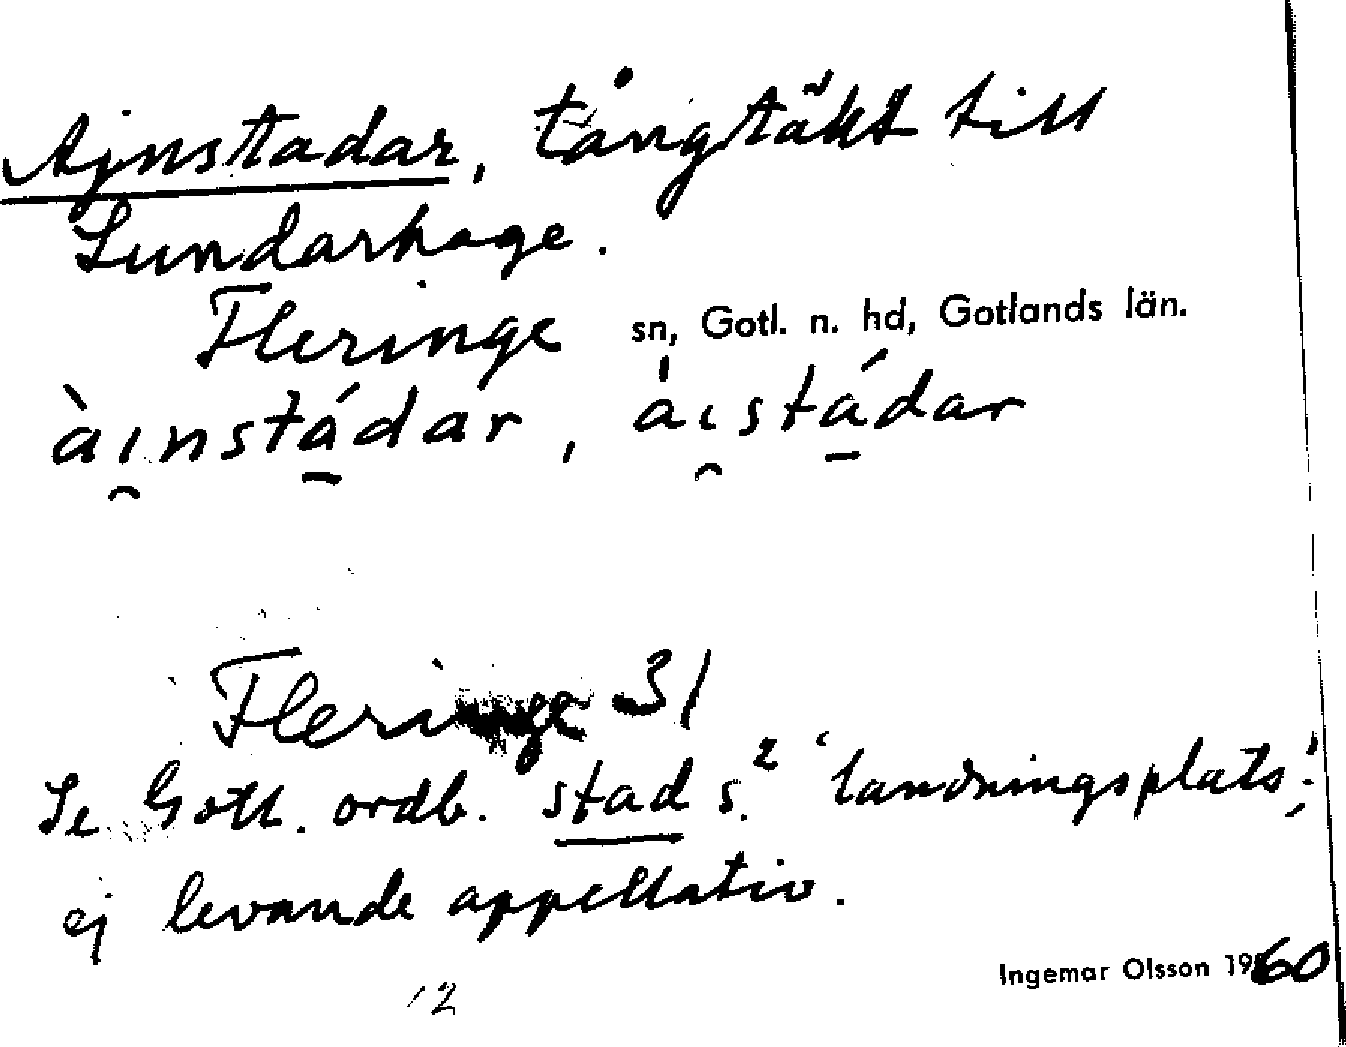 Ajnstadar, tångtäkt till
Lundarhage.
Fleringe sn, Gotl. n. hd, Gotlands län.
àı̯nstá̱dar, a̍ı̯stá̱dar
Fleringe 31
Se Gotl. ordb. stad s.² ‘landningsplats’;
ej levande appellativ.
Ingemar Olsson 1960
12